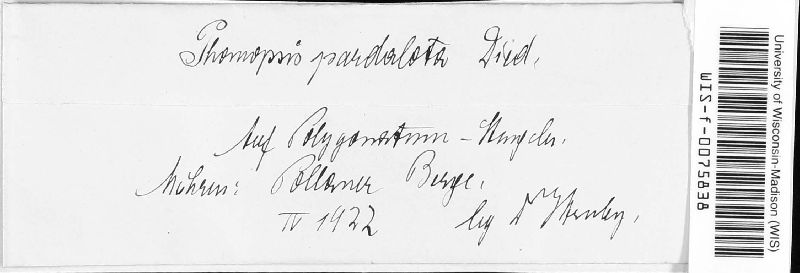 Phomopsis pardalota Died.
Auf Polygonatum - Stengeln.
Mähren: Pollauer Berge.
IV 1922
leg Dr
University of Wisconsin-Madison (WIS)
WIS-f-0075838